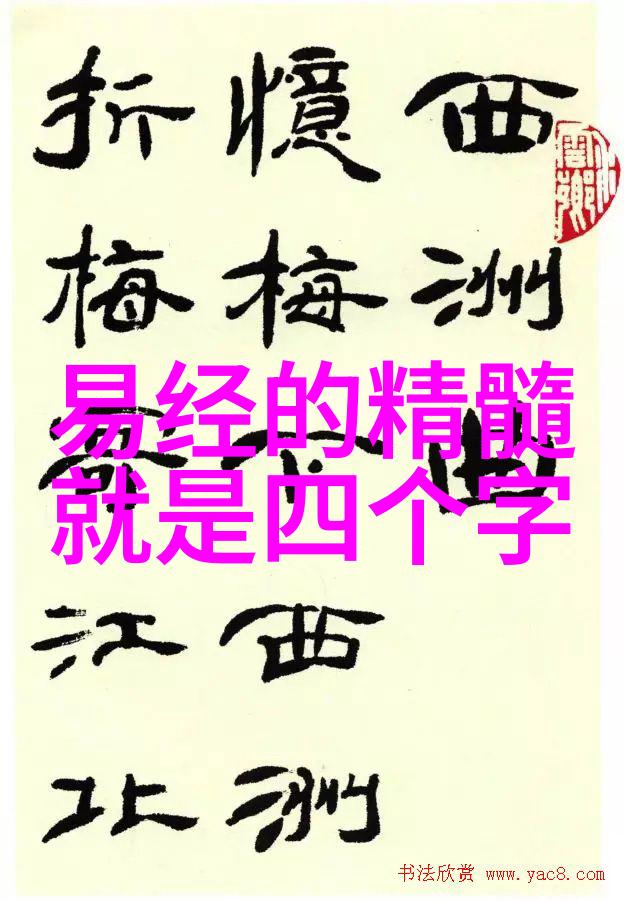 西洲曲
憶梅下西洲
折梅寄江北
易经的精髓
就是四个字
书法欣赏 www.yac8.com